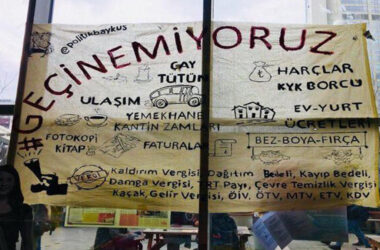 @politikbaykus
#GEÇİNEMİYORUZ
ÇAY
TÜTÜN
HARÇLAR
KYK BORCU
ULAŞIM
YEMEKHANE
KANTİN ZAMLARI
EV-YURT
ÜCRETLERİ
FOTOKOPİ
KİTAP
FATURALAR
BEZ-BOYA-FIRÇA
Kaldırım Vergisi Dağıtım Bedeli, Kayıp Bedeli,
Damga Vergisi, TRT Payı, Çevre Temizlik Vergisi
Kaçak, Gelir Vergisi, ÖİV, ÖTV, MTV, ETV, KDV